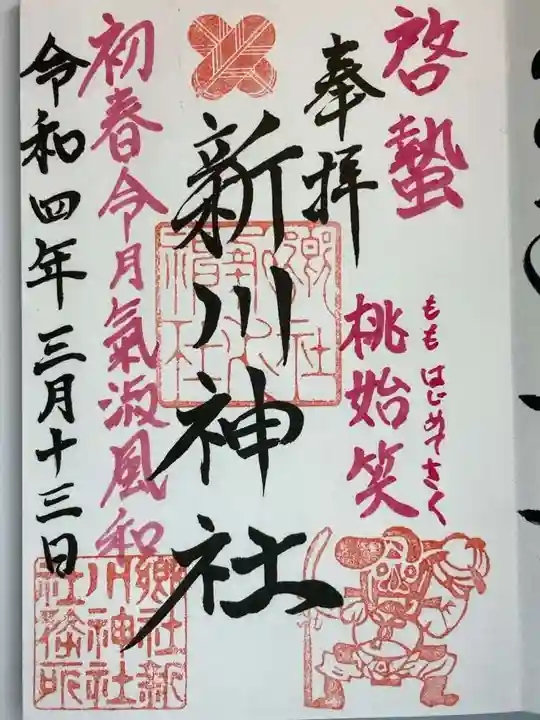 啓蟄
桃始笑
ももはじめてさく
奉拝
新川神社
初春令月氣淑風和
令和四年三月十三日
郷社新
川神社
社務所